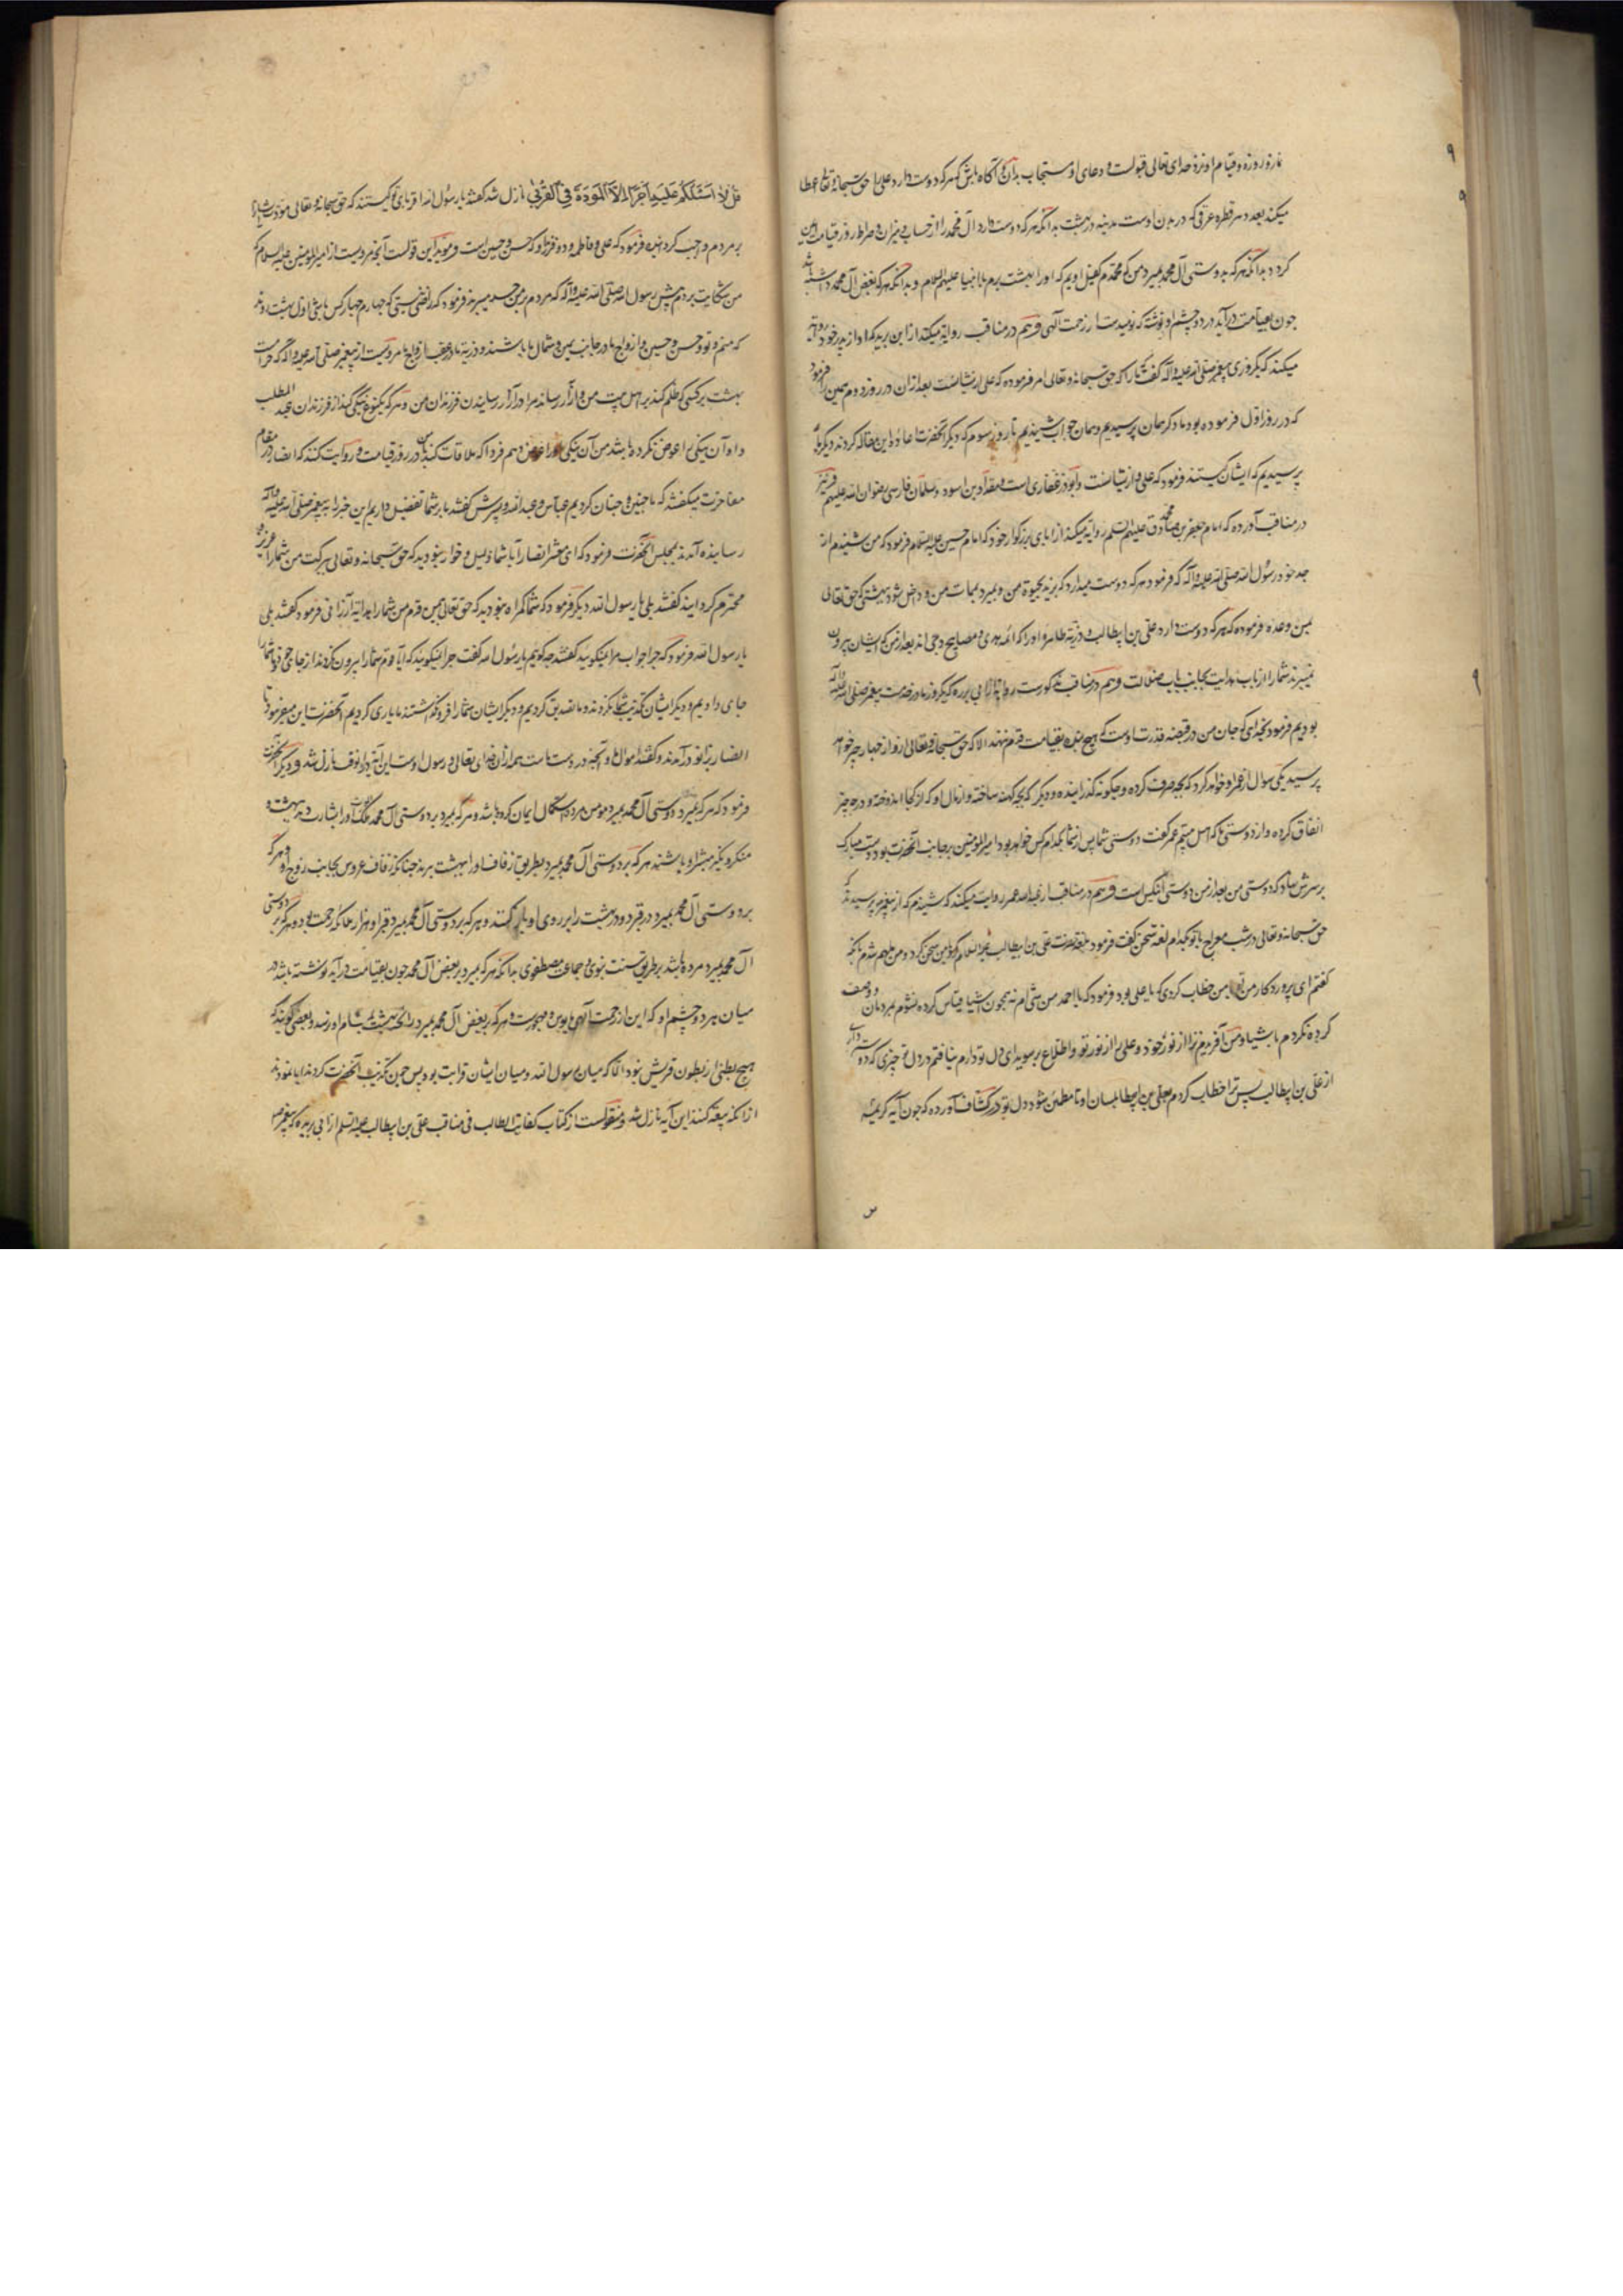 نماز و روزه و قیام او نزد خدای تعالی قبولست و دعای او مستجاب بدان و آگاه باش که هر که دوست دارد علی را حق سبحانه و تعالی عطا
میکند بعدد هر قطره عرقی که در بدن اوست مدینه در بهشت بدانکه هر که دوست دارد آل محمد را از حساب و میزان و صراط روز قیامت ایمن
کردد بدانکه هر که بدوستی آل محمد بمیرد من که محمدم کفیل اویم که او را ببهشت برم با انبیا علیهم السلام و بدانکه هر که بغض آل محمد داشته باشد
چون بقیامت درآید در دو چشم او نوشته که نومیدست از رحمت الهی و هم در مناقب روایة میکند از ابن بریده که او از پدر خود روایة
میکند که یکروزی پیغمبر صلی الله علیه و آله گفت که ما را که حق سبحانه و تعالی امر فرموده که علی از ایشانست بعد از آن در روز دوم همین را فرمود
که در روز اول فرموده بود ما دکر همان پرسیدیم و همان جواب شنیدیم تا روز سوم که دیگر آنحضرت اعاده این مقاله کردند دیگر ما
پرسیدیم که ایشان کیستند فرمود که علی از ایشانست و ابوذر غفاری است و مقداد بن اسود و سلمان فارسی رضوان الله علیهم و نیز
در مناقب آورده که امام جعفر بن محمد صادق علیهم السلم روایة میکند از ابای بزرکوار خود که امام حسین علیه السلام فرمود که من شنیدم از
جد خود رسول الله صلی الله علیه و آله که فرمود هر که دوست میدارد که بزید بحیوة من و بمیرد بممات من و داخل شود ببهشتی که حق تعالی
بمن وعده فرموده که هر که دوست دارد علی بن ابیطالب و ذریة طاهره او را که ائمه هدی و مصابیح دجی اند بعد از من که ایشان بیرون
نمیبرند شما را از باب هدایت بجانب باب ضلالت و هم در مناقب مذکورست روایة از ابی برزه که یکروز ما در خدمت پیغمبر صلی الله علیه و آله
بودیم فرمود بخدای که جان من در قبضه قدرت اوست که هیچ بنده بقیامت قدم ننهد الا که حق سبحانه و تعالی ازو از چهار چیز خواهد
پرسید یکی سوال از عمر او خواهد کرد که بچه صرف کرده و چکونه کذرانیده و دیگر که بچه کهنه ساخته و از مال او که از کجا اندوخته و در چه چیز
انفاق کرده و از دوستی ما که اهل بیتیم عمر گفت دوستی شما پس از شما بکدام کس خواهد بود امیر المومنین بر جانب آنحضرت بود دست مبارک
بر سرش نهاد که دوستی من بعد از من دوستی آنکس است و هم در مناقب از عبدالله عمر روایت میکند که شنیدم که از پیغمبر پرسیدند که
حق سبحانه و تعالی در شب معراج با تو بکدام لغه سخن گفت فرمود بلغة حضرت علی بن ابیطالب علیه السلام که با من سخن کرد و من ملهم شدم تا آنکه
گفتم ای پروردکار من تو با من خطاب کردی که یا علی بود فرمود که یا احمد من شی ام نه همچون اشیا قیاس کرده نشوم بمردمان و وصف
کرده نکردم باشیا و من آفریدم ترا از نور خود و علی را از نور تو و اطلاع بر سویدای دل تو دارم نیافتم در دل تو چیزی که دوست تر داری
از علی بن ابیطالب پس ترا خطاب کردم بعلی بن ابیطالب بلسان او تا مطمئن شود دل تو در کشاف آورده که چون آیه کریمه
قل لا اسئلکم علیه اجرا الا المودة فی القربی نازل شد گفتند یا رسول الله اقربای تو کیستند که حق سبحانه و تعالی مودت ایشان را
بر مردم واجب کردانیده فرمود که علی و فاطمه و دو فرزند او که حسن و حسین است و موید این قولست آنچه مرویست از امیر المومنین علیه السلام که
من شکایت بردم پیش رسول الله صلی الله علیه و آله که مردم بر من حسد میبرند فرمود که راضی نیستی که چهارم چهار کس باشی اول بهشت روند
که منم و تو و حسن و حسین و ازواج ما در جانب یمین و شمال ما باشند و ذریة ما در عقب ازواج ما مرویست از پیغمبر صلی الله علیه و آله که حرامست
بهشت بر کسی که ظلم کند بر اهل بیت من و آزار رساند مرا در آزار رسانیدن فرزندان من و هر که یکنوع نیکی کند از فرزندان عبد المطلب
و او آن نیکی را عوض نکرده باشد من آن نیکی او را عوض دهم فردا که ملاقات کند با من در روز قیامت و روایت کنند که انصار در مقام
مفاخرت میگفتند که ما چنین و چنان کردیم عباس و عبدالله پسرش گفتند ما بر شما تفضیل داریم این خبر را به پیغمبر صلی الله علیه و آله
رسانیده آمدند بمجلس آنحضرت فرمود که ای معشر انصار آیا شما ذلیل و خوار نبودید که حق سبحانه و تعالی ببرکت من شما را عزیز و
محترم گردانید گفتند بلی یا رسول الله دیگر فرمود که شما گمراه نبودید که حق تعالی بیمن قدم من شما را هدایة ارزانی فرمود گفتند بلی
یا رسول الله فرمود که چرا جواب مرا نمیکویید گفتند چه کوئیم یا رسول الله گفت چرا نمیکویید که آیا قوم شما را بیرون نکردند از جای خود و شما را
جای دادیم و دیگر ایشان تکذیب شما نکردند و ما تصدیق کردیم و دیگر ایشان شما را فرو نگذاشتند ما یاری کردیم آنحضرت این میفرمود تا
انصار بزانو درآمدند و گفتند اموال ما و آنچه در دست ماست همه از آن خدای تعالی و رسول اوست این آیه در آنوقت نازل شد و دیگر آنحضرت
فرمود که هر که بمیرد بدوستی آل محمد بمیرد مومن مرده استکمال ایمان کرده باشد و هر که بمیرد بر دوستی آل محمد ملک الموت او را بشارت دهد ببهشت و
منکر و نکیر مبشر او باشند هر که بر دوستی آل محمد بمیرد بطریق زفاف او را ببهشت برند چنانکه زفاف عروس بجانب زوج او و هر که
بر دوستی آل محمد بمیرد در قبر دو در بهشت را بر روی او باز کنند و هر که بر دوستی آل محمد بمیرد قبر او مزار ملائکه رحمت بود و هر که بر دوستی
آل محمد بمیرد مرده باشد بر طریق سنت نبوی و جماعت مصطفوی بدانکه هر که بمیرد بر بغض آل محمد چون بقیامت درآید نوشته باشد در
میان هر دو چشم او که این از رحمت الهی مایوس و مهجورست و هر که بر بغض آل محمد بمیرد رایحه بهشت بمشام او نرسد و بعضی گویند که
هیچ بطنی از بطون قریش نبود الا که میان رسول الله و میان ایشان قرابت بود پس چون تکذیب آنحضرت کردند و ابا نمودند
از آنکه بیعة کنند این آیه نازل شد و منقولست از کتاب کفایة الطالب فی مناقب علی بن ابیطالب علیه السلم از ابی بریده که پیغمبر